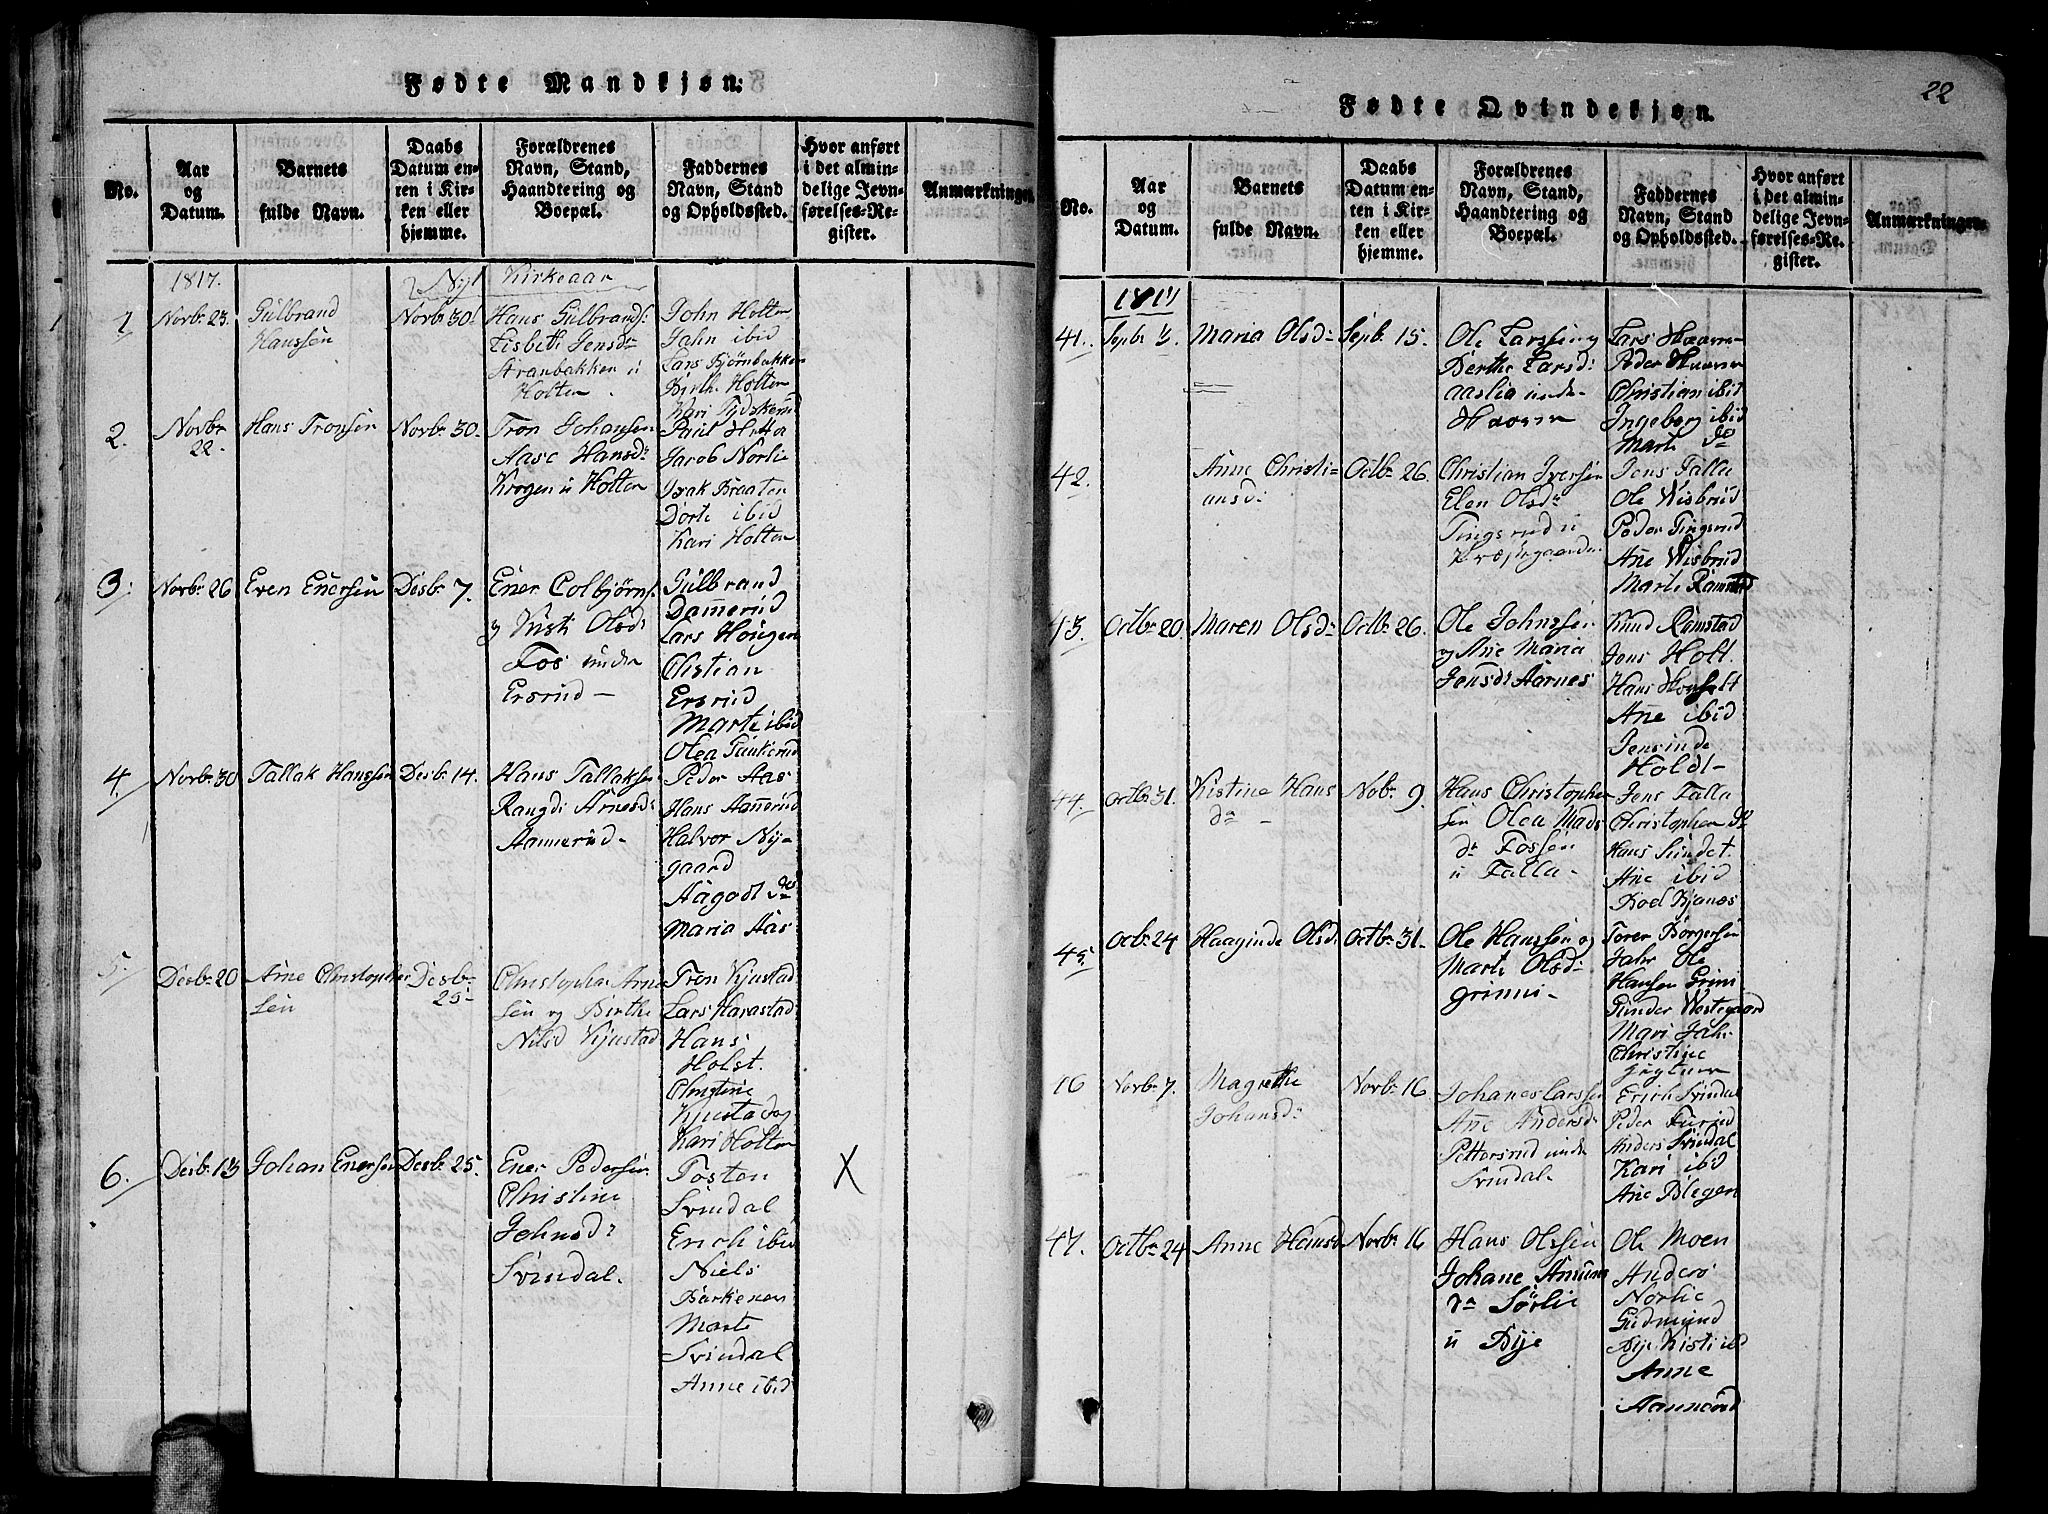 Fødte Mandkjøn:
No.
Aar
og
Datum.
Barnets
fulde Navn.
Daabs
Datum en-
ten i Kir-
ken eller
hjemme.
Forældrenes
Navn, Stand,
Haandtering og
Boepæl.
Faddernes
Navn, Stand
og Opholdssted.
Hvor anført
i det almin-
delige Jevn-
førelses-Re-
gister.
Anmærkninger
1817.
Nyt Kirkeaar
1
Novbr 23.
Gulbrand
Hanssen
Novbr 30
Hans Gulbrands:
Lisbeth Jensdr
Stranbakken u
Holten
John Holten
Jahn ibid
Lars Bjørnbakken
Birthe Holten
Kari Tydskerud
2.
Novbr
22.
Hans Tronsen
Novbr 30.
Tron Johansen
Aase Hansdr
Krogen u Holten
Paul Hetta
Jacob Norlie
Isak Braaten
Dorte ibid
Kari Holten
3.
Novbr 26
Even Enersen
Desbr 7.
Ener Colbjørns.
og Kisti Olsdr
Fos under
Ersrud
Gulbrand
Dammerud
Lars Hougen
Christian
Ersrud
Marte ibid
Olea Funkerud
4.
Novbr 30
Tallak Hanssen
Desbr 14.
Hans Tallaksen
Rangdi Arnesdr
Aamerud
Peder Aas
Hans Aamerud
Halvor Ny-
gaard
Aagodt ds
Maria Aas
5.
Desbr 20
Arne Christopher
sen
Desbr
25
Christopher Arne
sen og Birthe
Nilsd Kjustad
Tron Kjustad
Lars Harastad
Hans
Holst.
Christine
Kjustad og
Kari Holten
6.
Desbr 13
Johan Enersen
Desbr 25.
Ener Pedersen
Christine
Johnsdr
Svindal.
Tosten
Svindal
Erich ibid
Niels
Barkenes
Marte
Svindal
Anne ibid
X
22
Fødte Qvindekjøn.
No.
Aar
og
Datum.
Barnets
fulde Navn.
Daabs
Datum en-
ten i Kir-
ken eller
hjemme.
Forældrenes
Navn, Stand,
Haandtering og
Boepæl.
Faddernes
Navn, Stand
og Opholdssted.
Hvor anført
i det almin-
delige Jevn-
førelses-Re-
gister.
Anmærkninger.
1817
41.
Sepbr
Maria Olsdr
Sepbr 15.
Ole Larssen og
Berthe Larsd:
aaslia under
Haavm
Lars
Peder
Christian ibid
Ingeborg ibid
Mart do
42.
Anne Christi=
ansd:
Octbr 26
Christian Iversen
Elen Olsdr
Tingsrud u
Præstegaarden
Jens Falla
Ole Wisbrud
Peder Tingsrud
Ane Wisbrud
Marte Ramstad
43.
Octbr 20.
Maren Olsdr
Octbr 26.
Ole Johnssen
og Ane Maria
Jensdr Aarnes
Knud Ramstad
Jens Holt.
Hans
Ane ibid
Jensinde
Holdt
44.
Octbr 31.
Kistine Hans
dr
Nobr 9.
Hans Christopher
sen Olea Mads
dr Fossen
u Falla
Jens Falla
Christopher do
Hans Sundet.
Ane ibid
Boel Kjanæs
45.
Ocbr 24
Haaginde Olsd:
Octbr 31.
Ole Hanssen og
Marte Olsdr
grinni
Torer Børgersen
Jahr Ole
Hansen Grini
Gunder Westgaard
Mari Jahr
Christine
16
Novbr 7.
Magrethe
Johansdr
Novbr 16
Johanes Larssen
Ane Andersdr
Pettersrud under
Svindal.
Erich Svindal
Peder Furud
Anders Svindal
Kari ibid
Ane Blegen
47.
Octbr 24
Anne Hansd
Novbr 16
Hans Olssen
Johane Amun
dr Sørlie
u Bye
Ole Moen
Anders
Norlie
Gudmund
Bye Kisti ibd
Anne
Aamerud